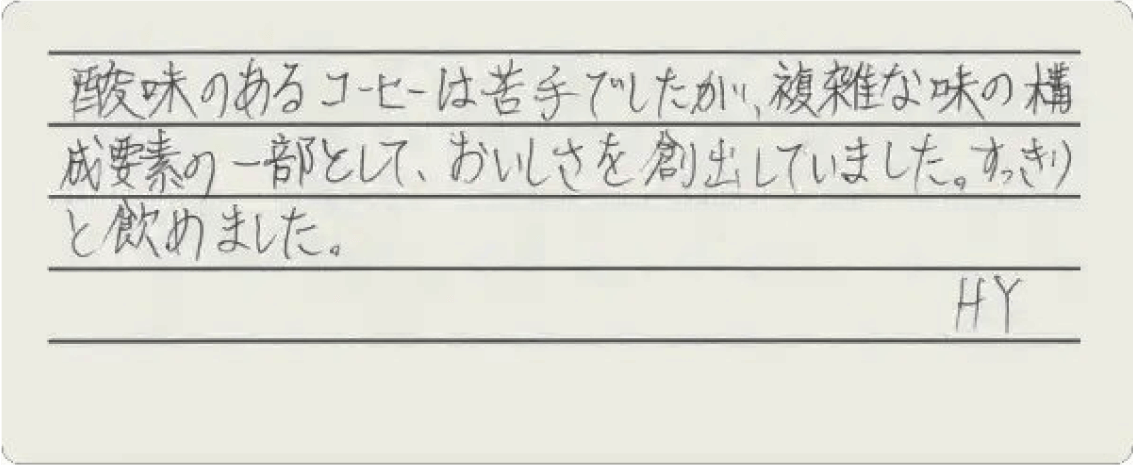 酸味のあるコーヒーは苦手でしたが、複雑な味の構
成要素の一部として、おいしさを創出していました。すっきり
と飲めました。
HY